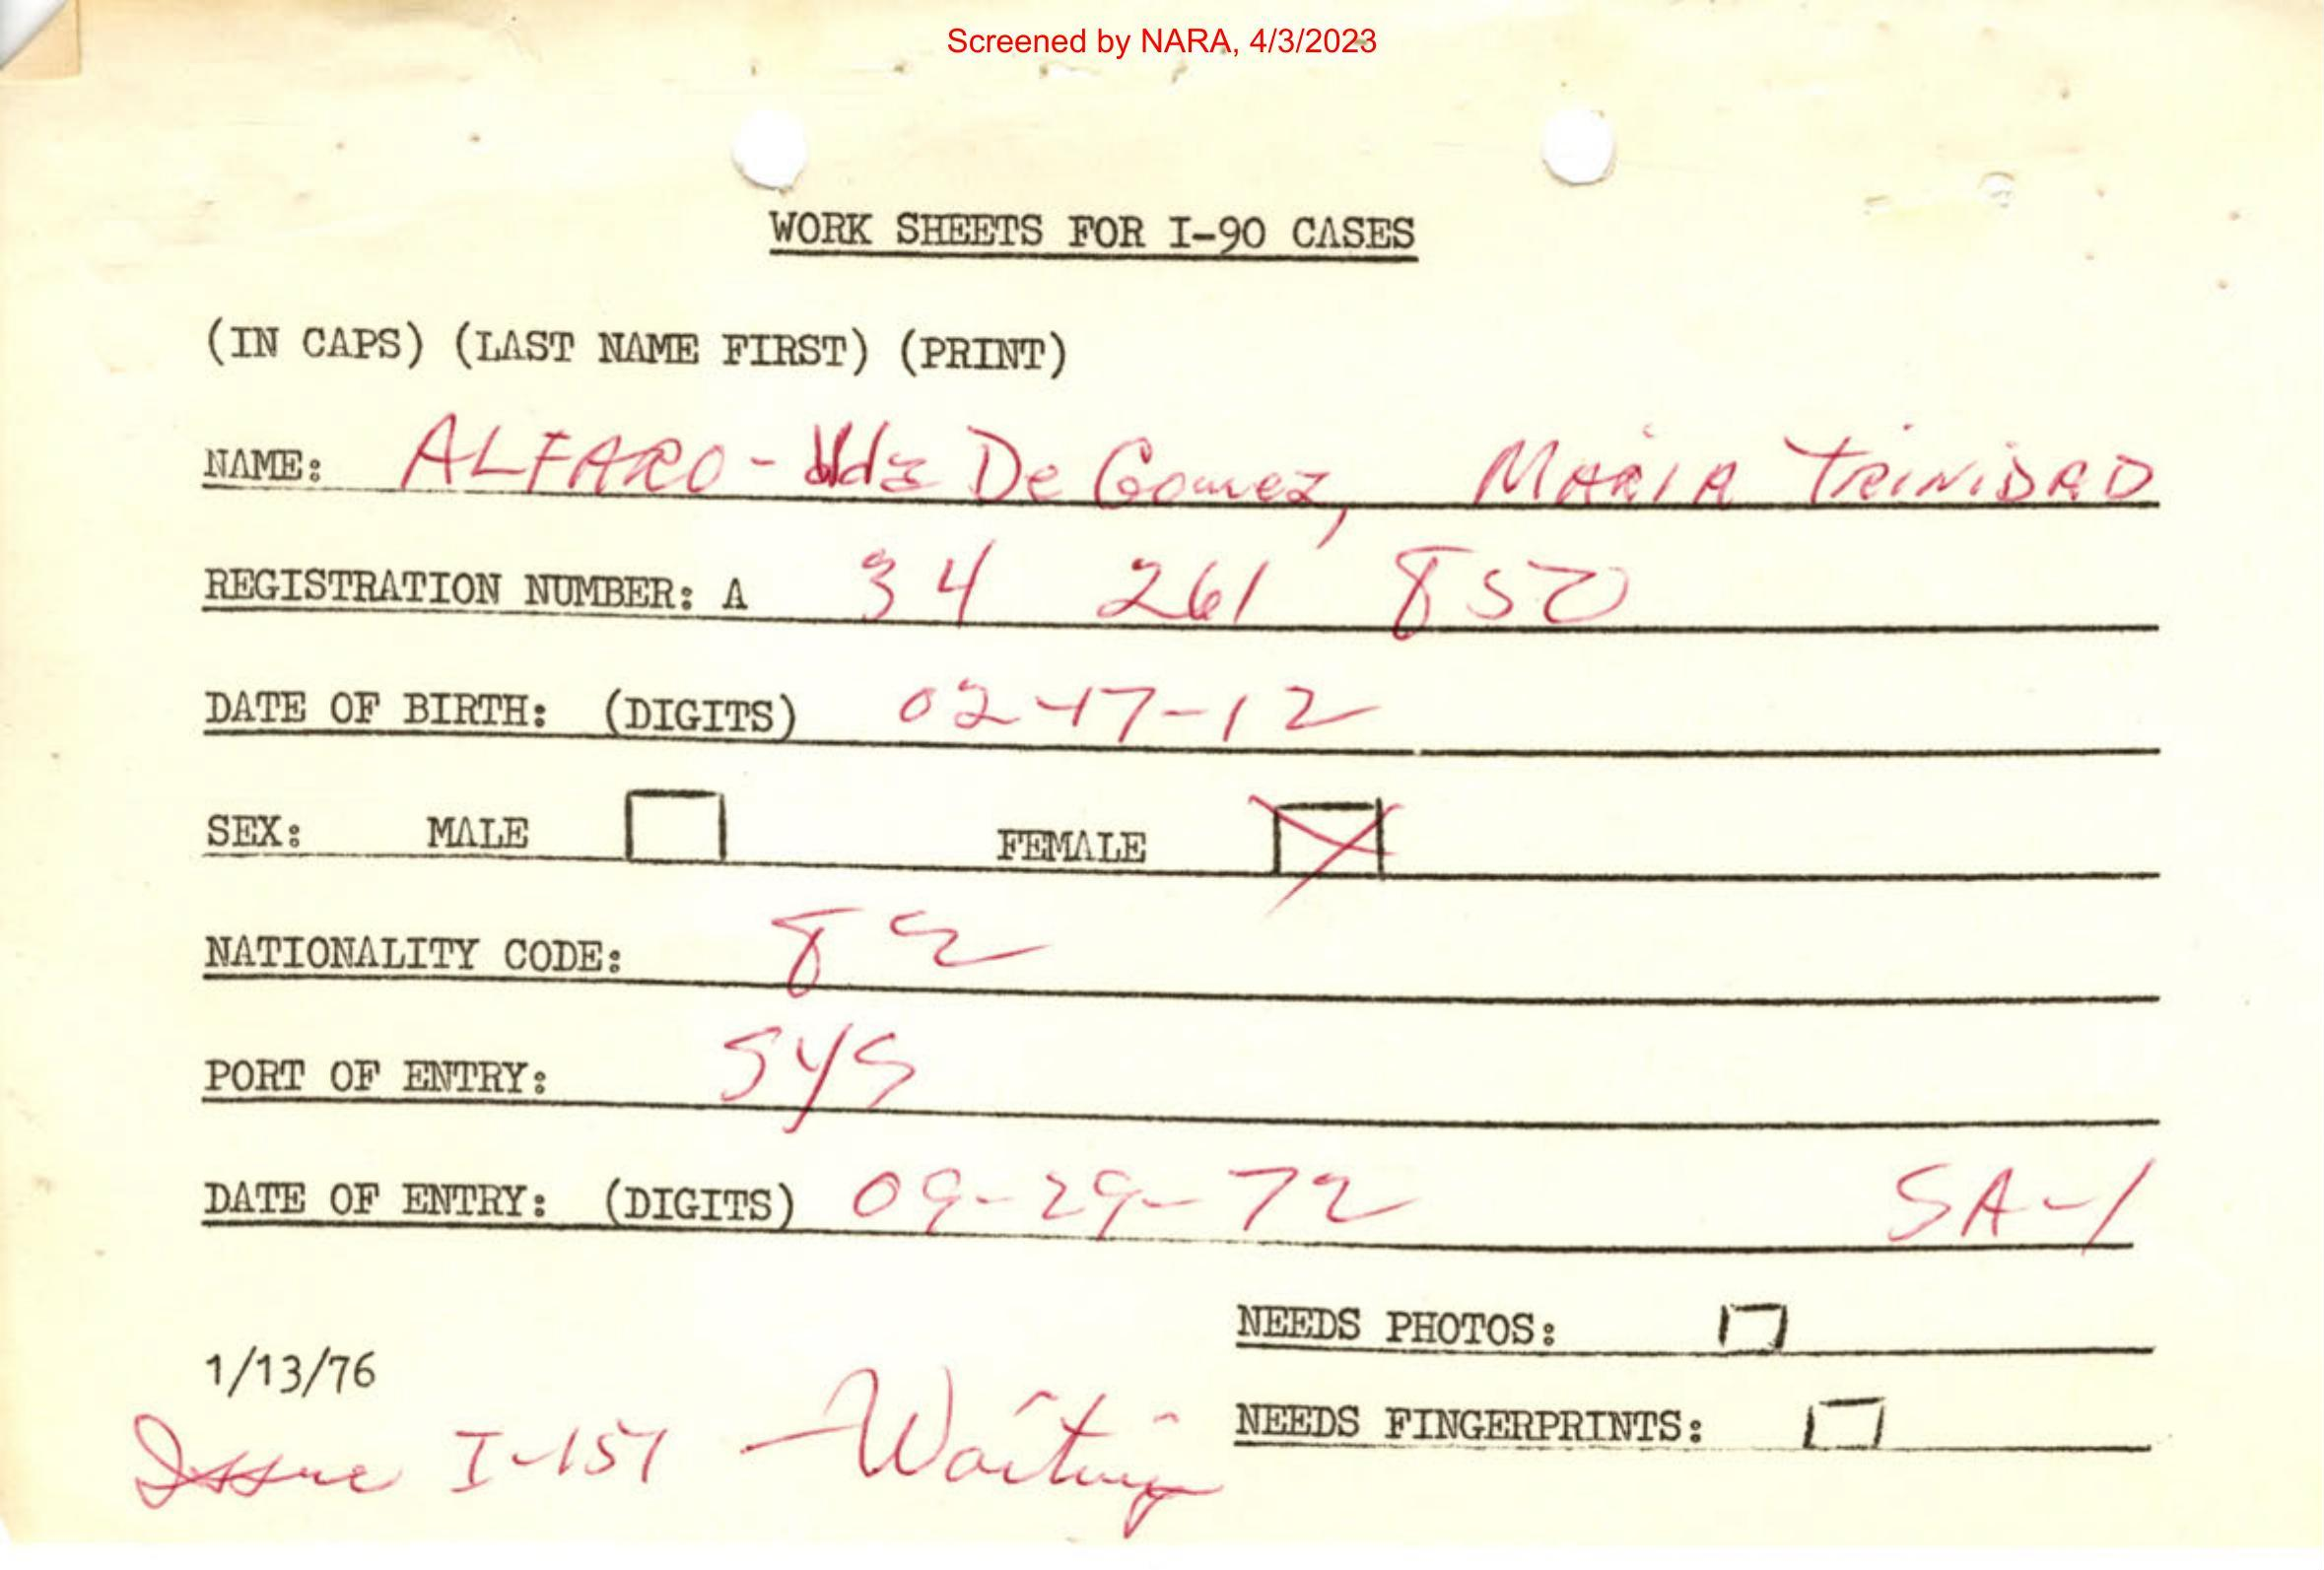 Screened by NARA, 4/3/2023
WORK SHEETS FOR I-90 CASES
(IN CAPS) (LAST NAME FIRST) (PRINT)
NAME: ALFARO - Vda De Gomez, MARIA TRINIDAD
REGISTRATION NUMBER: A 34 261 850
DATE OF BIRTH: (DIGITS) 02-17-12
SEX: MALE FEMALE
NATIONALITY CODE: 82
PORT OF ENTRY: SYS
DATE OF ENTRY: (DIGITS) 09-29-72 SA-1
NEEDS PHOTOS:
1/13/76
NEEDS FINGERPRINTS:
Issue I-151 - Waiting